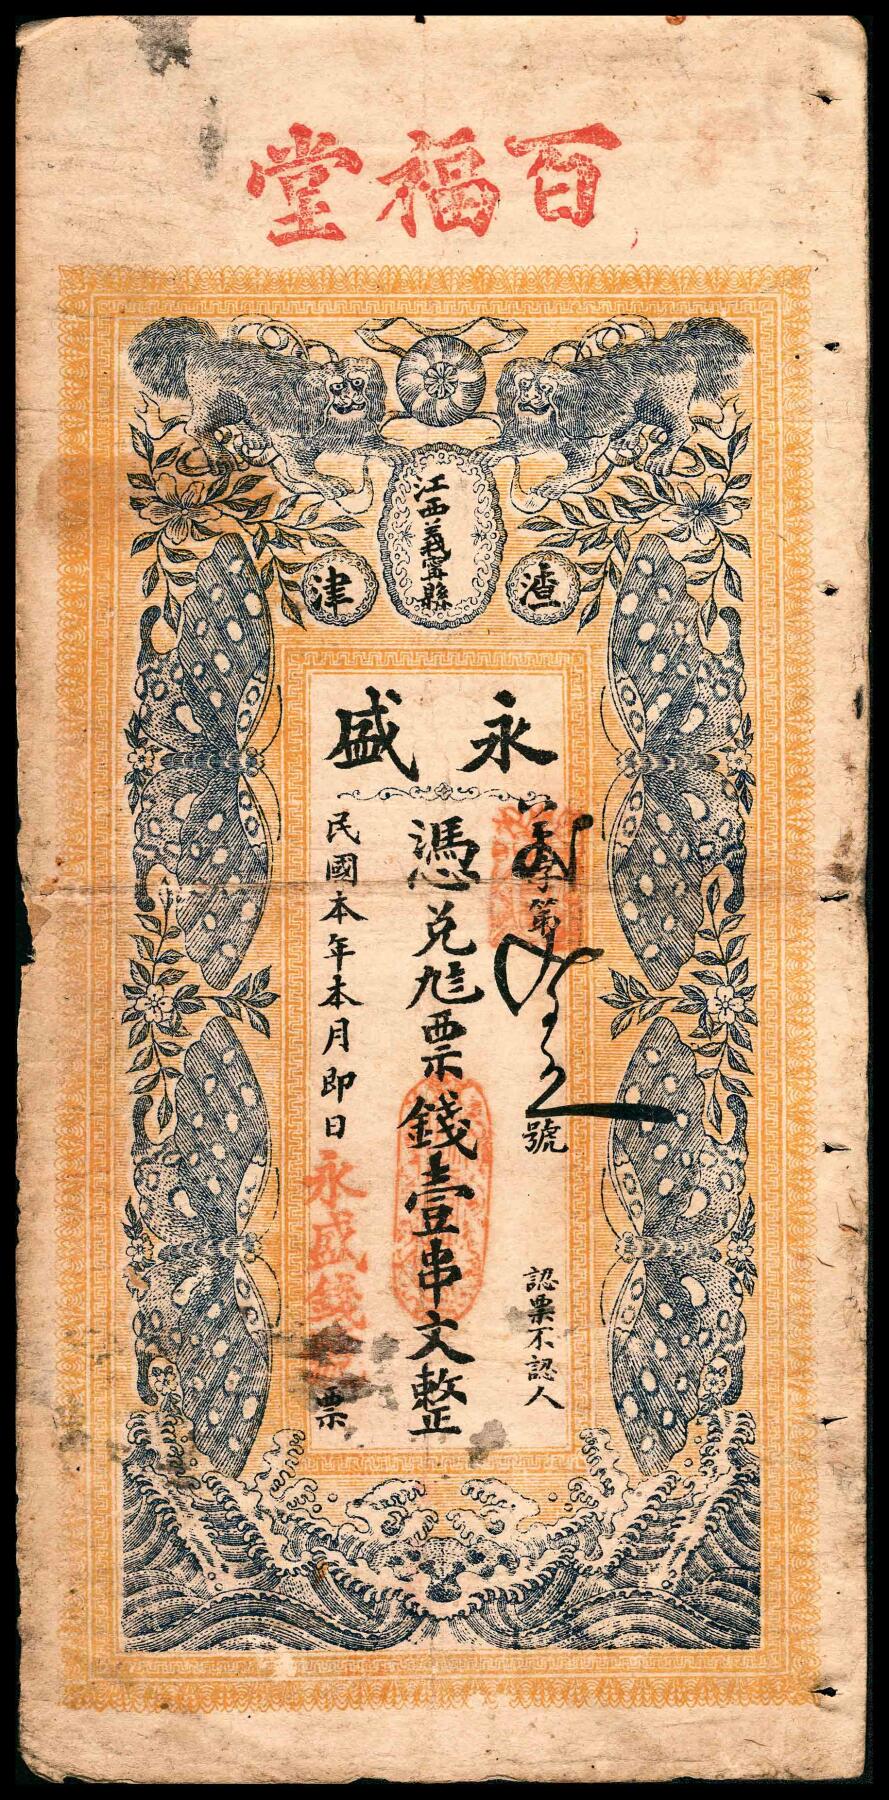 百福堂
江西義寧縣
渣津
永盛
字第
號
認票不認人
憑兌尨票錢壹串文整
民國本年本月即日
永盛錢
票